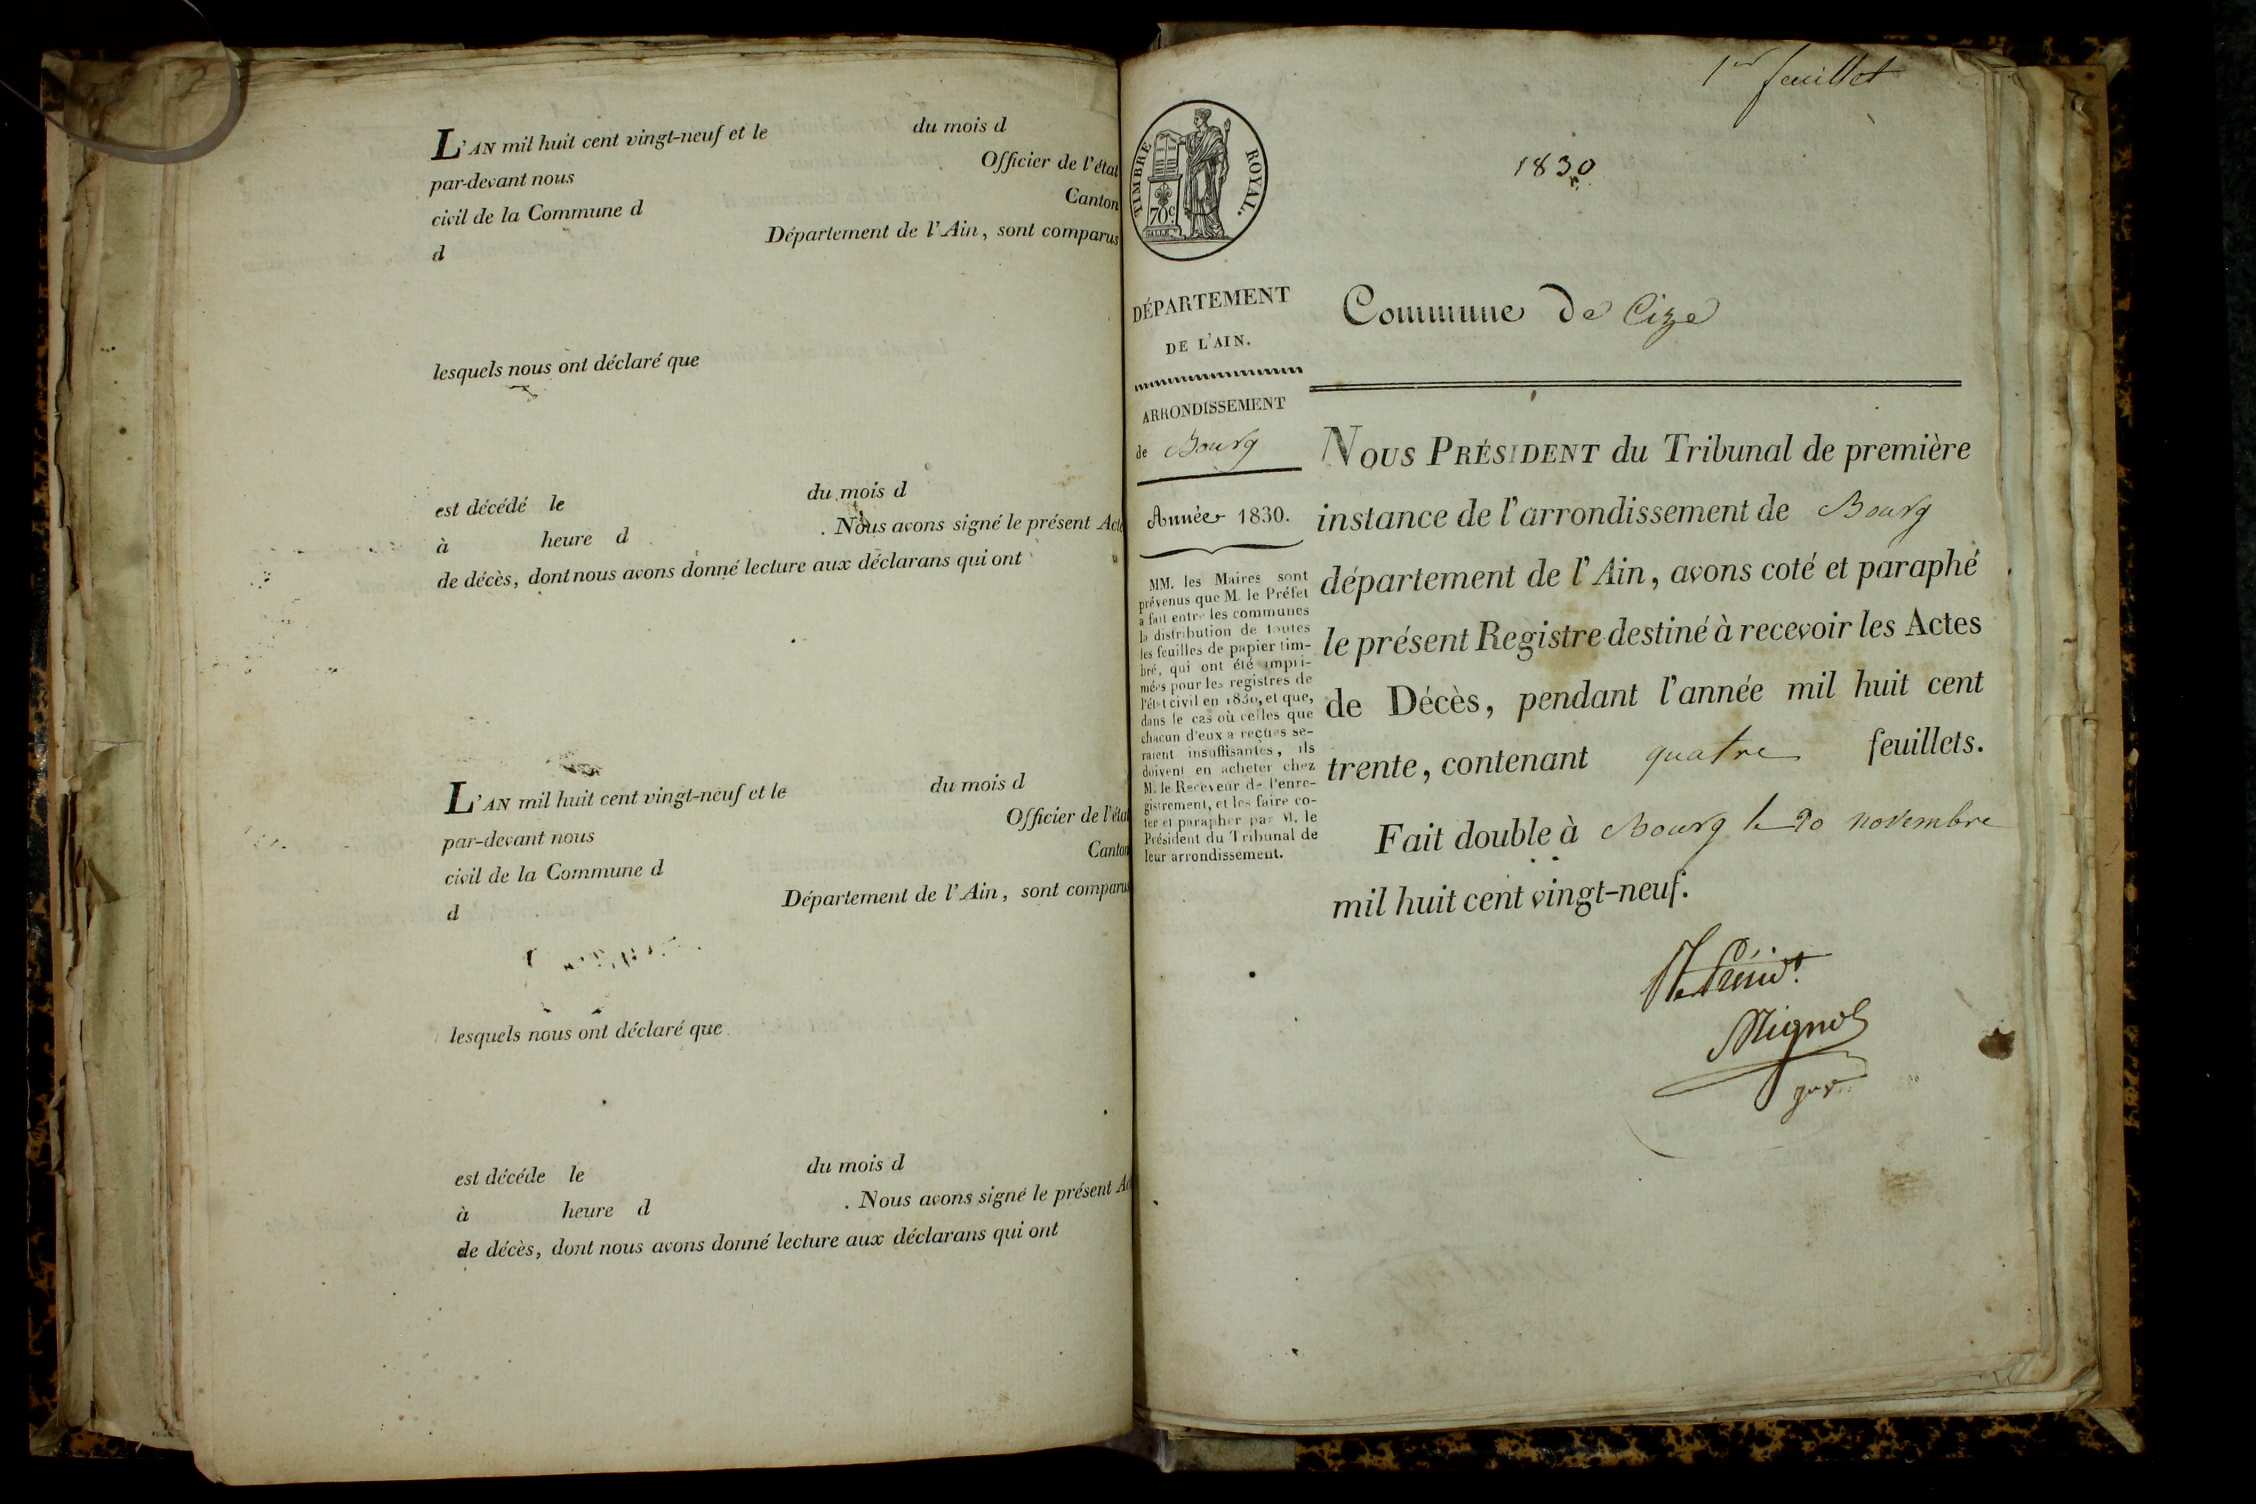 L'AN mil huit cent vingt-neuf et le du mois d
par-devant nous Officier de l'état
civil de la Commune d Canton
d Département de l'Ain, sont comparus
lesquels nous ont déclaré que
est décédé le du mois d
à heure d . Nous avons signé le présent Acte
de décès, dont nous avons donné lecture aux déclarans qui ont
L'AN mil huit cent vingt-neuf et le du mois d
par-devant nous Officier de l'état
civil de la Commune d Canton
d Département de l'Ain, sont comparus
lesquels nous ont déclaré que
est décéde le du mois d
à heure d . Nous avons signé le présent Ac
de décès, dont nous avons donné lecture aux déclarans qui ont
1er feuillet
TIMBRE ROYAL.
70c.
1830
DÉPARTEMENT
DE L'AIN.
ARRONDISSEMENT
de Bourg
Année 1830.
MM. les Maires sont
prévenus que M. le Préfet
a fait entre les communes
la distribution de toutes
les feuilles de papier tim-
bré, qui ont été impri-
mées pour les registres de
l'état civil en 1830, et que,
dans le cas où celles que
chacun d'eux a reçues se-
raient insuffisantes, ils
doivent en acheter chez
M. le Receveur de l'enre-
gistrement, et les faire co-
ter et parapher par M. le
Président du Tribunal de
leur arrondissement.
Commune de Cize
NOUS PRÉSIDENT du Tribunal de première
instance de l'arrondissement de Bourg
département de l'Ain, avons coté et paraphé
le présent Registre destiné à recevoir les Actes
de Décès, pendant l'année mil huit cent
trente, contenant quatre feuillets.
Fait double à Bourg le 20 novembre
mil huit cent vingt-neuf.